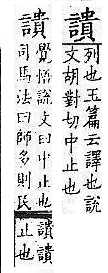 䜋
列也玉篇云譯也說
文胡對切中止也
䜋
覺悟說文曰中止也
司馬法曰師多則民
䜋䜋
止也